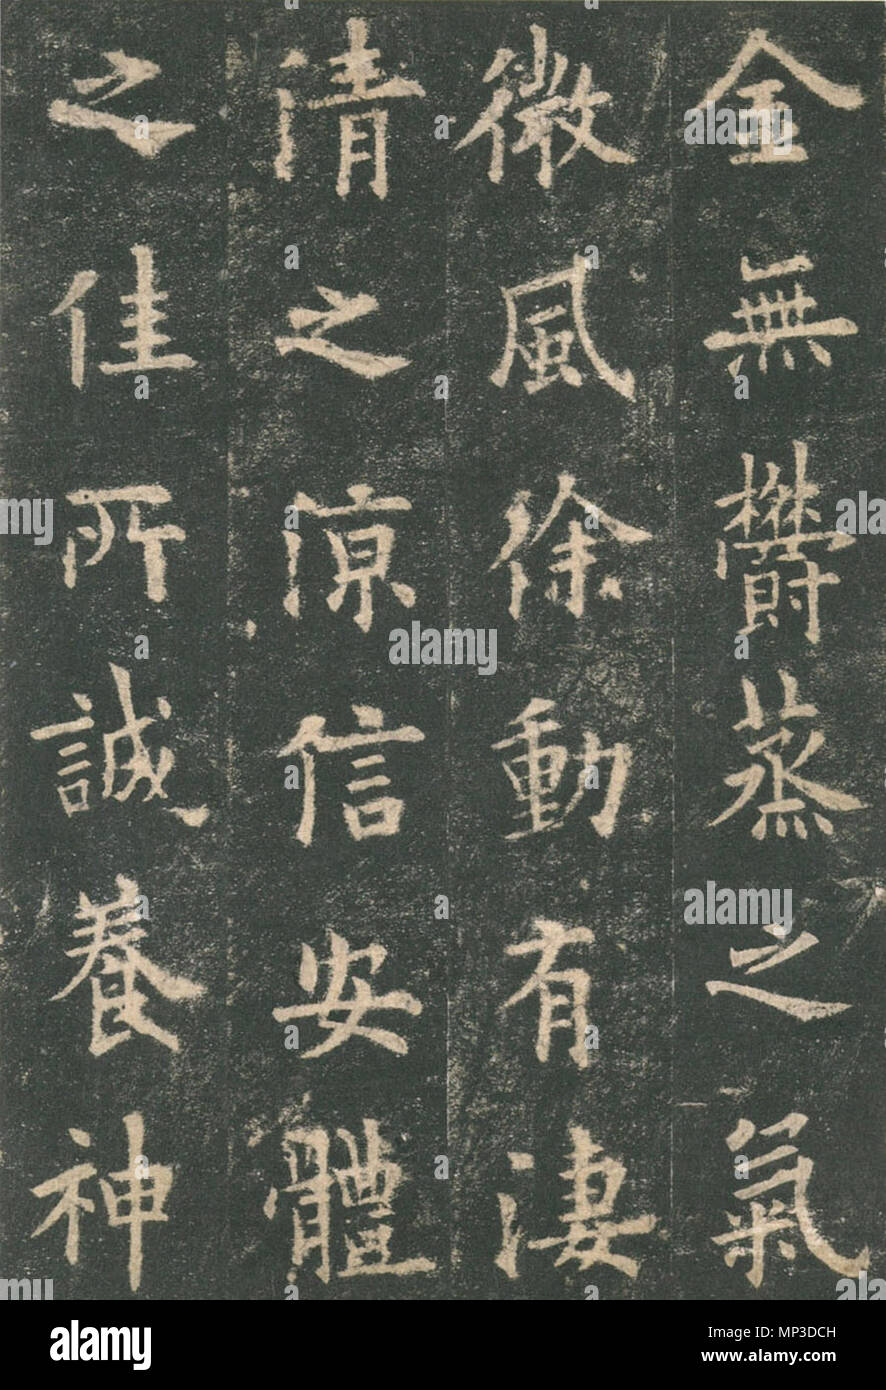 金無欝蒸之氣
微風徐動有淒
清之涼信安體
之佳所誠養神
alamy
Image ID: MP3DCH
www.alamy.com